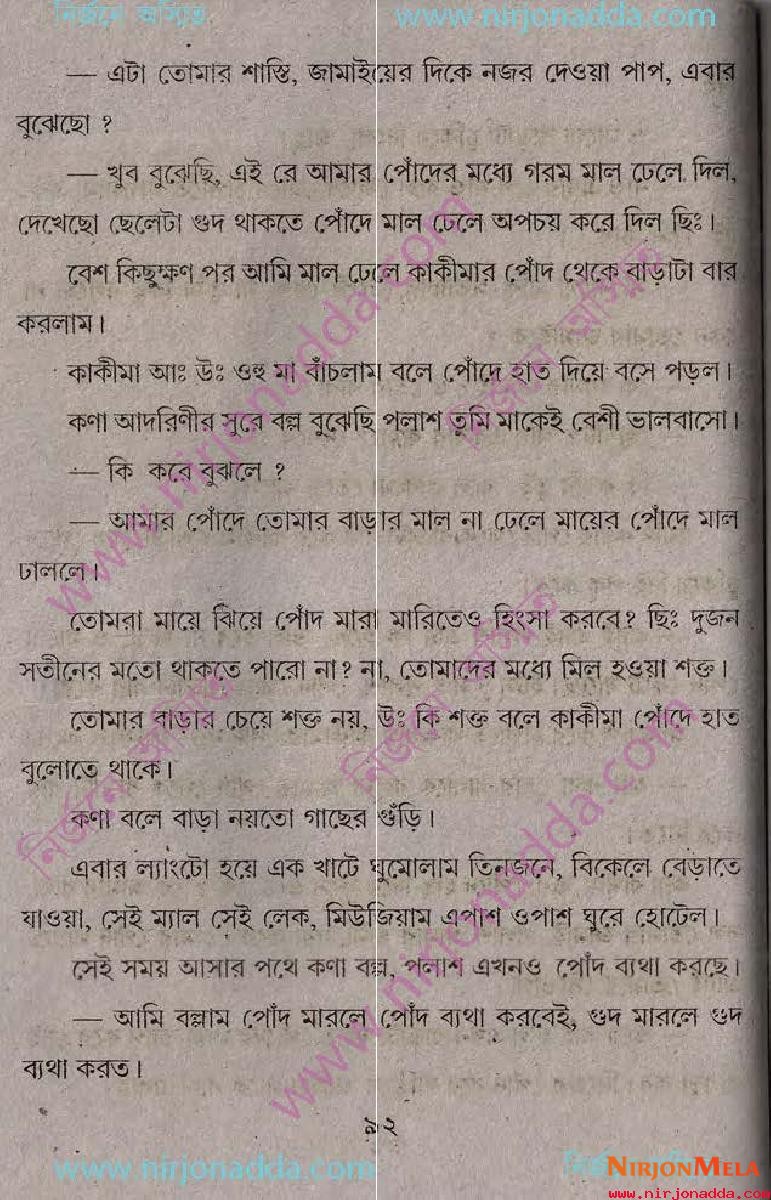 নির্জনে অস্মিত www.nirjonadda.com
— এটা তোমার শাস্তি, জামাইয়ের দিকে নজর দেওয়া পাপ, এবার
বুঝেছো ?
— খুব বুঝেছি, এই রে আমার পোঁদের মধ্যে গরম মাল ঢেলে দিল,
দেখেছো ছেলেটা গুদ থাকতে পোঁদে মাল ঢেলে অপচয় করে দিল ছিঃ।
বেশ কিছুক্ষণ পর আমি মাল ঢেলে কাকীমার পোঁদ থেকে বাড়াটা বার
করলাম।
কাকীমা আঃ উঃ ওহু মা বাঁচলাম বলে পোঁদে হাত দিয়ে বসে পড়ল।
কণা আদরিণীর সুরে বল্ল বুঝেছি পলাশ তুমি মাকেই বেশী ভালবাসো।
— কি করে বুঝলে ?
— আমার পোঁদে তোমার বাড়ার মাল না ঢেলে মায়ের পোঁদে মাল
ঢাললে।
তোমরা মায়ে ঝিয়ে পোঁদ মারা মারিতেও হিংসা করবে? ছিঃ দুজন
সতীনের মতো থাকতে পারো না? না, তোমাদের মধ্যে মিল হওয়া শক্ত।
তোমার বাড়ার চেয়ে শক্ত নয়, উঃ কি শক্ত বলে কাকীমা পোঁদে হাত
বুলোতে থাকে।
কণা বলে বাড়া নয়তো গাছের গুঁড়ি।
এবার ল্যাংটো হয়ে এক খাটে ঘুমোলাম তিনজনে, বিকেলে বেড়াতে
যাওয়া, সেই ম্যাল সেই লেক, মিউজিয়াম এপাশ ওপাশ ঘুরে হোটেল।
সেই সময় আসার পথে কণা বল্ল, পলাশ এখনও পোঁদ ব্যথা করছে।
— আমি বল্লাম পোঁদ মারলে পোঁদ ব্যথা করবেই, গুদ মারলে গুদ
ব্যথা করত।
৯২
www.nirjonadda.com
NIRJONMELA
www.nirjonadda.com
www.nirjonadda.com
নির্জনে অস্মিত
নির্জনে অস্মিত
নির্জনে অস্মিত
www.nirjonadda.com